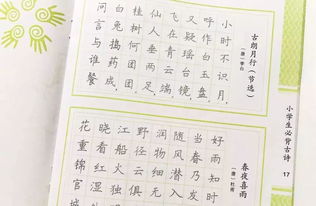 古朗月行(节选)
(唐)李白
小时不识月,
呼作白玉盘。
又疑瑶台镜,
飞在青云端。
仙人垂两足,
桂树何团团。
白兔捣药成,
问言与谁餐。
小学生必背古诗
17
春夜喜雨
(唐)杜甫
好雨知时
当春乃发
随风潜入
润物细无
野径云俱
江船火独
晓看红湿
花重锦官城